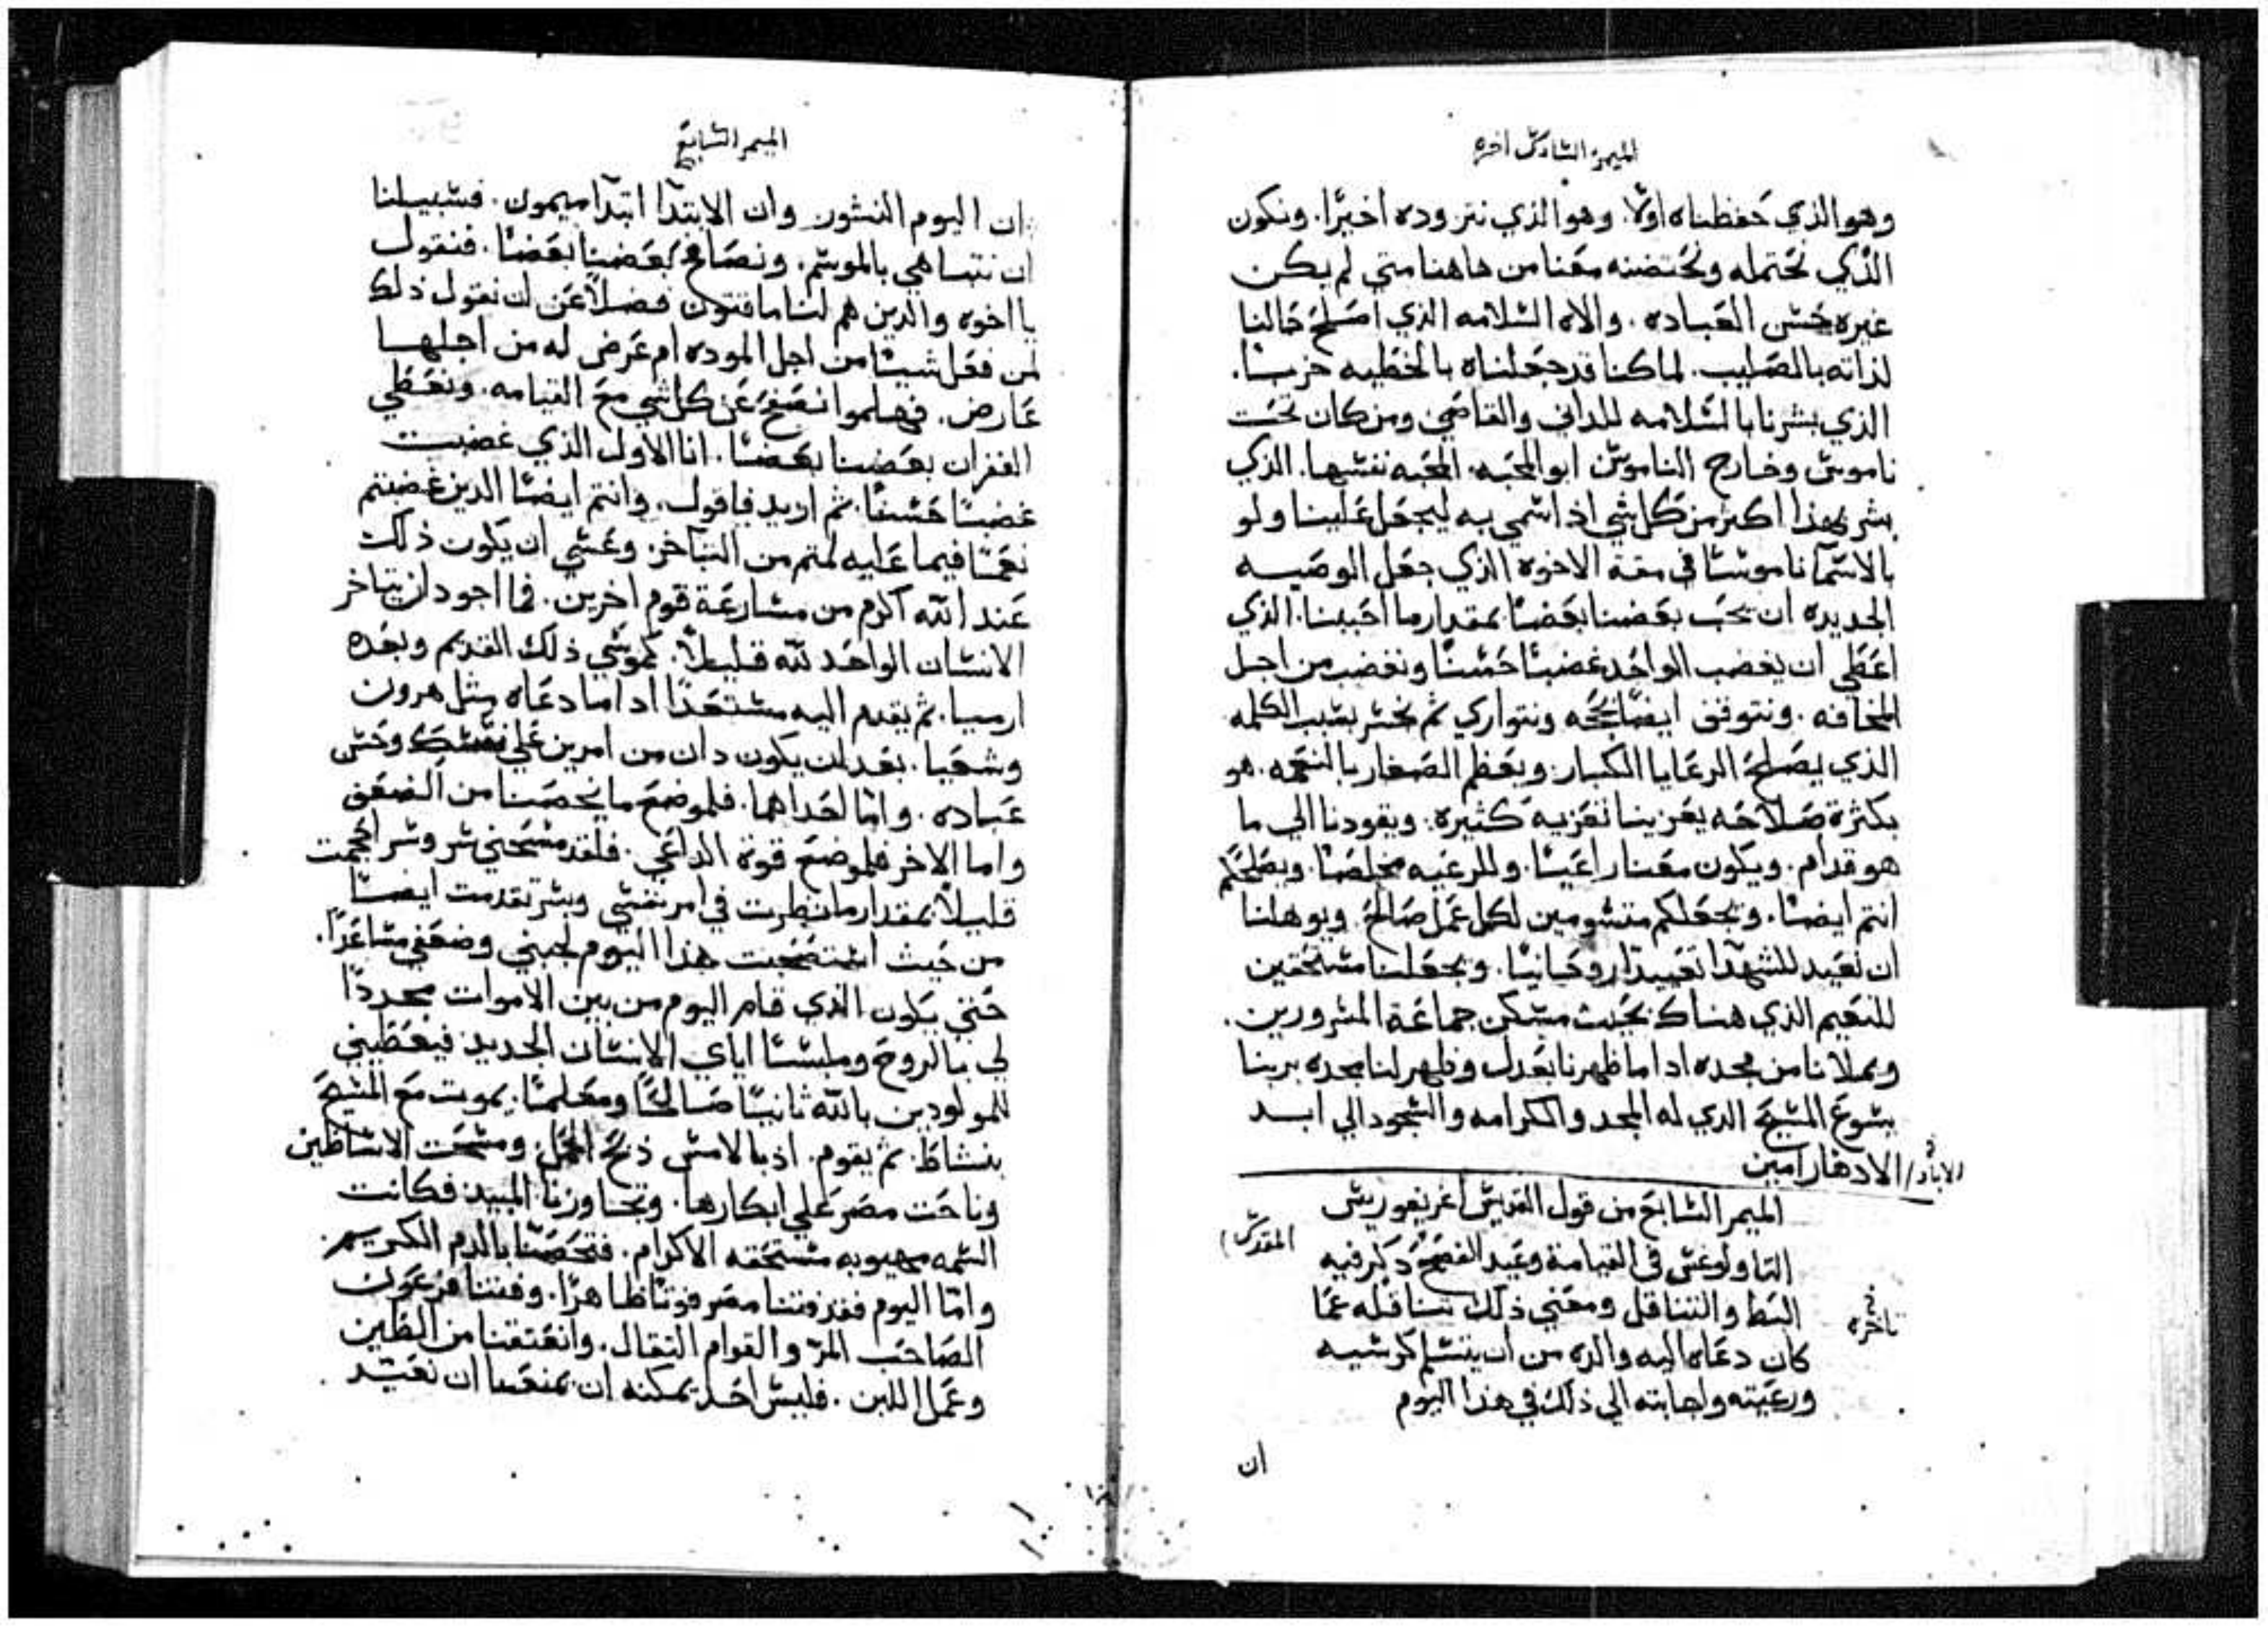 الميمر السادس اخره
وهو الذي حفظناه اولا. وهو الذي نتروده اخيرا. ونكون
الذي نحتمله ونحتضنه معنا من هاهنا متي لم يكن
غيره حسن العباده. والاه السلامه الذي اصلح حالنا
لذاته بالصليب. لما كنا قد جعلناه بالخطيه حربيا.
الذي بشرنا بالسلامه للداني والقاصي ومن كان تحت
ناموس وخارج الناموس ابو المحبه. المحبه نفسها. الذي
بشر بهذا اكثر من كل شي اذ اسمي به ليجعل علينا ولو
بالاسما ناموسا في مقة الاخوه الذي جعل الوصيه
الجديده ان يحب بعضنا بعضا بمقدار ما احببنا. الذي
اعطي ان يغضب الواحد غضبا حسنا ونغضب من اجل
المخافه. ونتوفق ايضا بحجه ونتواري ثم نخسر بسبب الكلمه
الذي يصلح الرعايا الكبار. ويعظم الصغار بالنعمه. هو
بكثرة صلاحه يعزينا تعزيه كثيره. ويقودنا الي ما
هو قدام. ويكون معنا راعيا. وللرعيه مخلصا. ويصلحكم
انتم ايضا. ويجعلكم متسومين لكل عمل صالح. ويوهلنا
ان نعيد للشهدا تعييدا روحانيا. ويجعلنا مستحقين
للنعيم الذي هناك بحيث مسكن جماعة المسرورين.
ويملانا من مجده اذا ما ظهرنا بعدل وظهر لنا مجده بربنا
يسوع المسيح الذي له المجد والكرامه والسجود الي ابد
الاباد / الادهار امين
الميمر السابع من قول القديس اغريغوريس
المقدس
التاولوغس في القيامة وعيد الفصح ذكر فيه
البط والتثاقل ومعني ذلك تثاقله عما
تاخره
كان دعاه اليه والده من ان يتسلم كرسيه
ورعيته واجابته الي ذلك في هذا اليوم
ان
الميمر السابع
ان اليوم النشور وان الابتدا ابتدا ميمون. فسبيلنا
ان نتباهي بالموسم. ونصافح بعضنا بعضا. فنقول
يا اخوه والذين هم لنا ماقتون فضلا عن ان نقول ذلك
لمن فعل شيا من اجل الموده ام عرض له من اجلها
عارض. فهلموا نصفح عن كل شي مع القيامه. ونعطي
الغفران بعضنا بعضا. انا الاول الذي غضبت
غضبا حسنا. ثم اريد فاقول. وانتم ايضا الدين غضبتم
نعما فيما عليه لمتم من التاخر. وعسي ان يكون ذلك
عند الله اكرم من مسارعة قوم اخرين. فما اجود ان يتاخر
الانسان الواحد لله قليلا. كموسي ذلك القديم وبعده
ارميا. ثم يقدم اليه مستعدا اذا ما دعاه مثل هرون
وشعيا. بعد ان يكون ذان من امرين علي نسك وحسن
عباده. واما احداهما. فلموضع ما يخصنا من الضعف
واما الاخر فلموضع قوة الداعي. فلقد مسحني سر وسر احجمت
قليلا بمقدار ما نظرت في امر نفسي وبسر تقدمت ايضا
من حيث استصحبت هذا اليوم لجبني وضعفي مساعدا.
حتي يكون الذي قام اليوم من بين الاموات مجددا
لي بالروح وملبسا اياي الانسان الجديد فيعطيني
للمولودين بالله ثانيا صالحا ومعلما. يموت مع المسيح
بنشاط. ثم يقوم. اذ بالامس ذبح الحمل. ومسحت الاساطين
وناحت مصر علي ابكارها. وتجاوزنا المبيد فكانت
السمه مهيوبه مستحقه الاكرام. فتحصنا بالدم الكريم.
واما اليوم فقد فتنا مصر فوتا ظاهرا. وفتنا فرعون
الصاحب المر والقوام الثقال. وانعتقنا من الطين
وعمل اللبن. فليس احد يمكنه ان يمنعنا ان نعيد